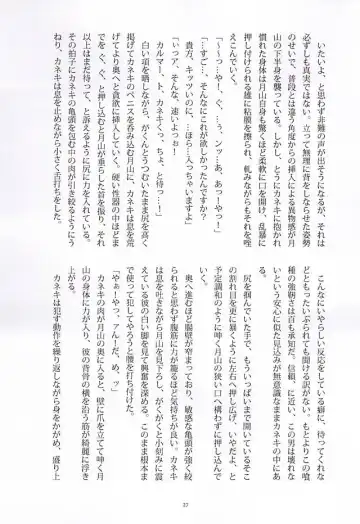 いたいよ、と思わず非難の声が出そうになるが、それは
必ずしも真実ではない。立って無理に背をしならせた姿勢
のせいで、普段とは違う角度からの挿入による異物感が月
山の下半身を襲っている。しかし、とうにカネキに抱かれ
慣れた身体は月山自身も驚くほど柔軟に口を開け、乱暴に
押し付けられる雄に粘膜が擦られ、軋みながらもそれを咥
えこんでいく。
「～～っ…や！、ぐ、…ぅ、ンッ…、あぁっ！やっ！」
「…すご…、そんなにこれが欲しかったんですか？
貴方、キッツいのに、…ほら…入っちゃいますよ」
「ぃっア、そんな、速いよぉっ！
カルマート、カネキくっ、ちょ、待っ…！」
白い項を晒しながら、がくんとうつむいたまま尻を高く
掲げてカネキのペニスを呑み込む月山に、カネキは息を荒
げてより奥へと貪欲に挿入していく。硬い性器の中ほどま
で、ぐ、ぐ、と押し込むと月山が垂らした首を振り、それ
以上はまだ待って、と訴えるように尻に力を入れている。
その拍子にカネキの亀頭を包む中の肉が引き絞るようにう
ねり、カネキは息を止めながら小さく舌打ちをした。
こんなにいやらしい反応をしている癖に、待ってくれな
どともったいぶられても聞ける訳がない。もとよりこの喰
種の強靭さは百も承知だ。信頼、に近い、この男は壊れな
いという安心に似た見込みが無意識なままカネキの中にあ
る。
尻を掴んでいた手で、もういっぱいまで開いているそこ
の割れ目を更に暴くように左右へ押し広げ、いやだよ、と
予定調和のように呻く月山の狭い口へ構わずに押し込んで
奥へ進むほど腸壁が窄まっており、敏感な亀頭が強く絞
られると思わず腹筋に力が籠るほど気持ちが良い。カネキ
は息を吐きながら月山を見下ろし、がくがくと小刻みに震
えている彼の白い脚を見て興奮を深める。このまま根本ま
で使って犯してやろうと腰を打ち付けた。
「やぁー！やっ、ァんー！だ、め、ッ」
カネキの肉が月山の奥に入ると、壁に爪を立てて呻く月
山の身体に力が入り、彼の背骨の横を沿う筋が綺麗に浮き
カネキは犯す動作を繰り返しながら身をかがめ、盛り上
37